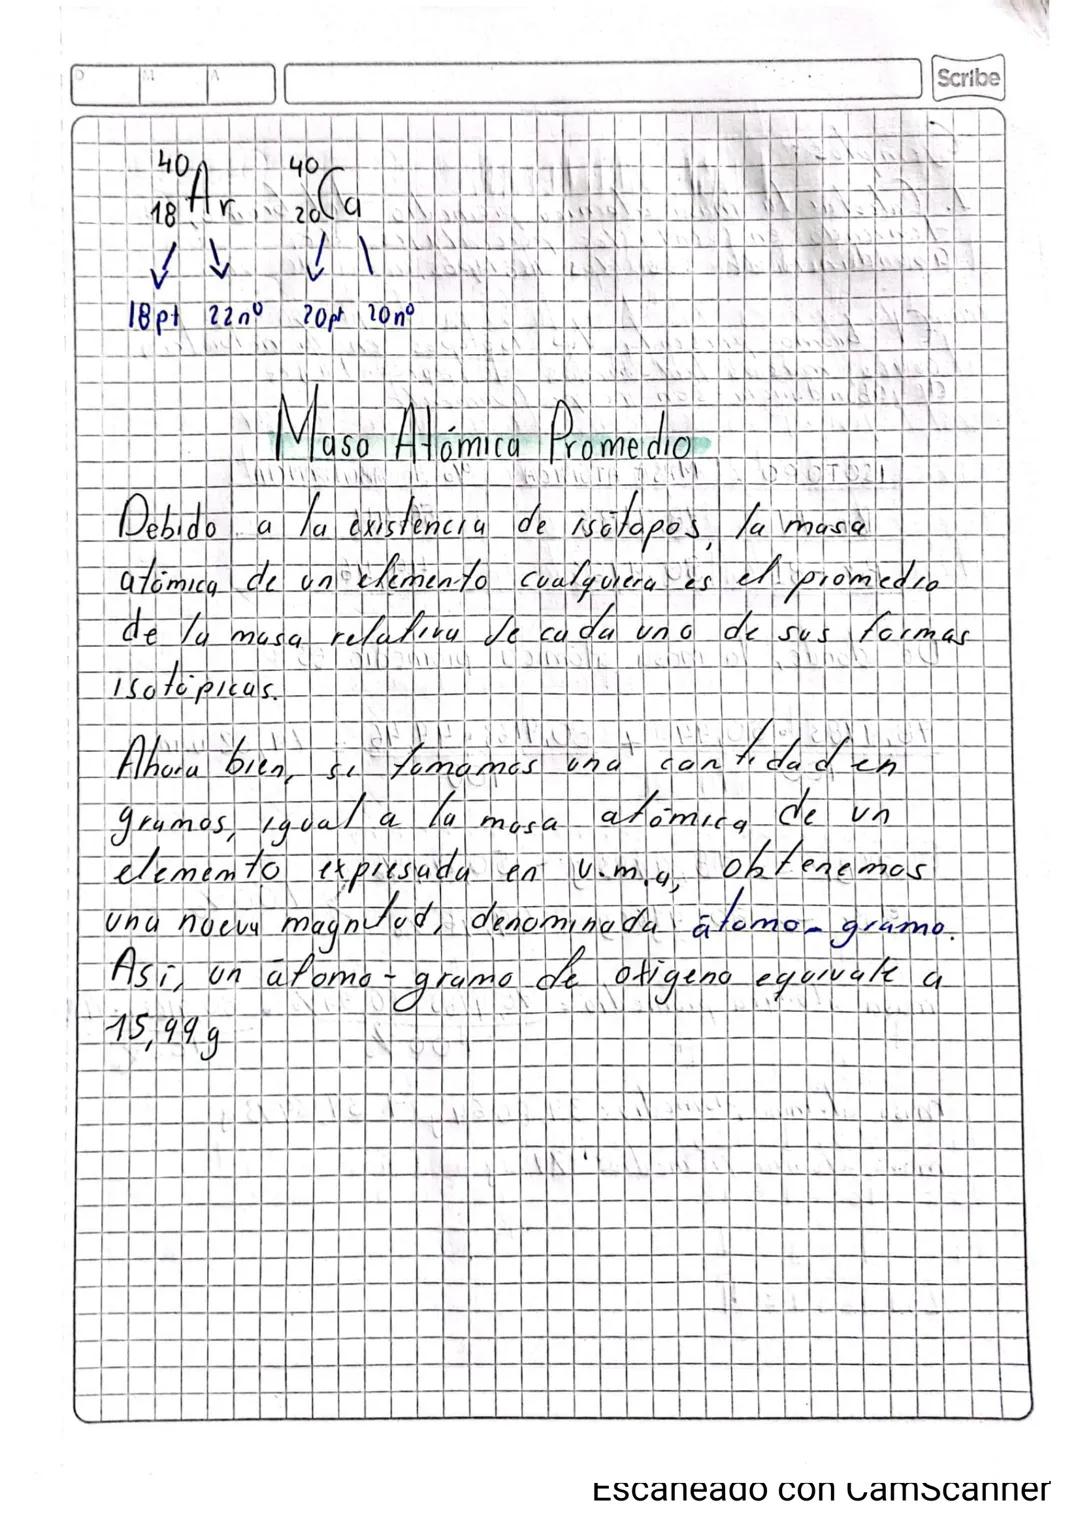 D M A Scribe
40 Ar 40 Ca
18 20
18 p+ 22 n° 20 p+ 20 n°
Masa Atómica Promedio
Debido a la existencia de isótopos, la masa
atómica de un elemento cualquiera es el promedio
de la masa relativa de cada uno de sus formas
isotópicas.
Ahora bien, si tomamos una cantidad en
gramos, igual a la masa atómica de un
elemento expresada en u.m.a, obtenemos
una nueva magnitud, denominada átomo-gramo.
Asi, un átomo-gramo de oxigeno equivale a
15,99 g
Escaneado con CamScanner